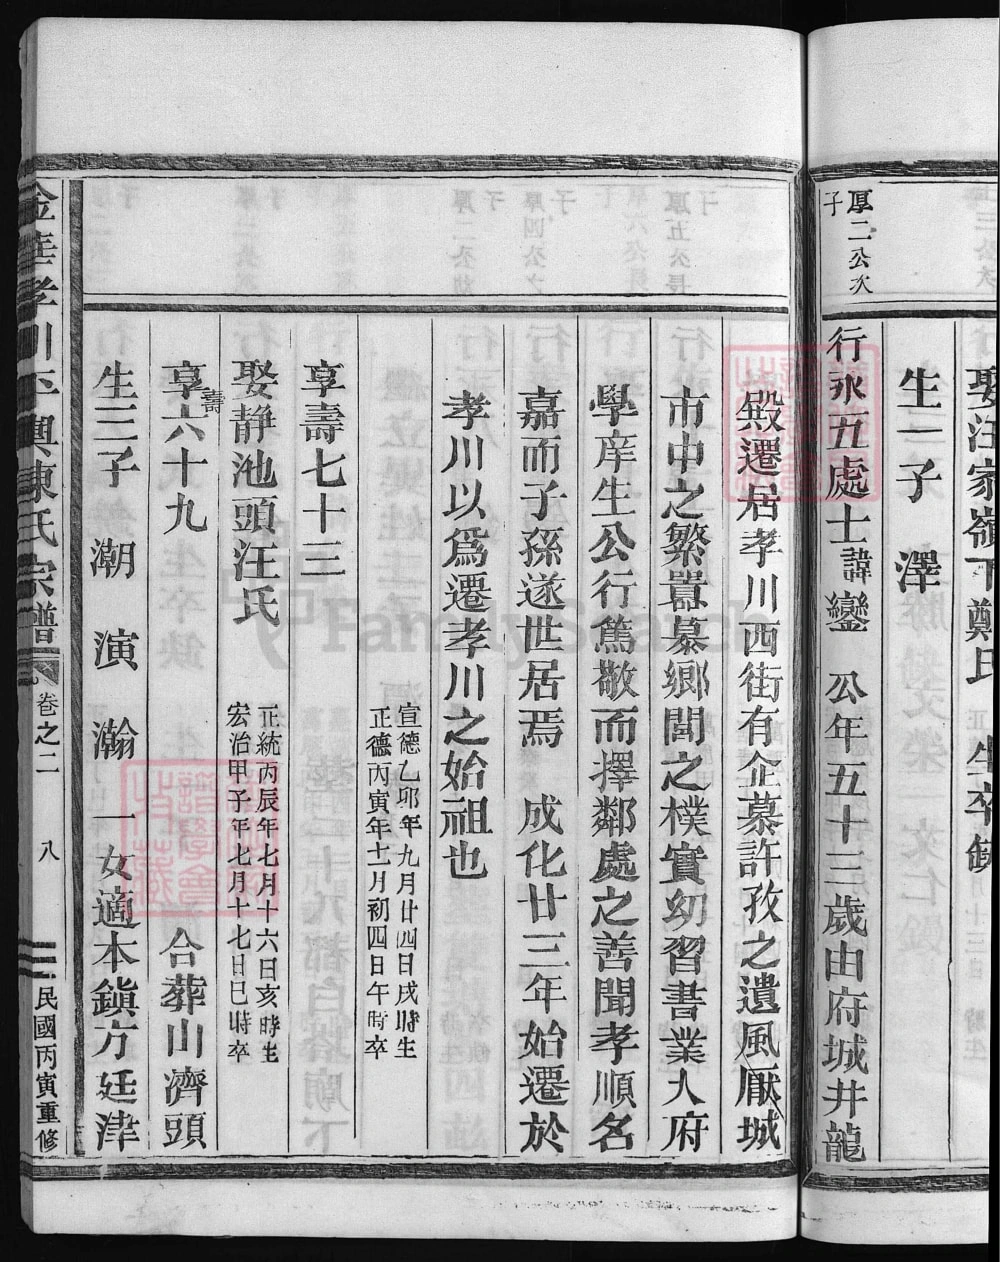 娶汪家嶺下鄭氏 生卒缺
生一子 澤
厚二公次
子
行永五處士諱鑾 公年五十三歲由府城井龍
殿遷居孝川西街有企慕許孜之遺風厭城
市中之繁囂慕鄉閭之樸實幼習書業入府
學庠生公行篤敬而擇鄰處之善聞孝順名
嘉而子孫遂世居焉 成化廿三年始遷於
孝川以為遷孝川之始祖也
宣德乙邱年九月廿四日戌時生
正德丙寅年十月初四日午時卒
享壽七十三
娶静池頭汪氏
正統丙辰年七月十六日亥時生
宏治甲子年七月十七日巳時卒
享壽六十九 合葬山濟頭
生三子 潮 演 瀚 一女適本鎮方廷津
金華孝川 陳氏宗譜 卷之二 八 民國丙寅重修
FamilySearch